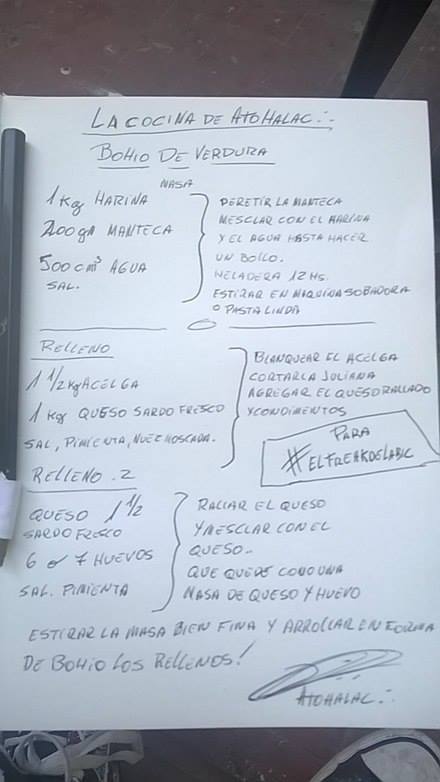 LA COCINA DE ATOHALAC∴
BOHIO DE VERDURA
MASA
1 Kg HARINA
200 gr MANTECA
500 cm³ AGUA
SAL.
DERETIR LA MANTECA
MESCLAR CON EL HARINA
Y EL AGUA HASTA HACER
UN BOLLO.
HELADERA 12 HS.
ESTIRAR EN MAQUINA SOBADORA
O PASTA LINDA
RELLENO
1 1/2 Kg ACELGA
1 Kg QUESO SARDO FRESCO
SAL, PIMIENTA, NUEZ MOSCADA.
BLANQUEAR EL ACELGA
CORTARLA JULIANA
AGREGAR EL QUESO RALLADO
Y CONDIMENTOS
PARA
#ELFREAKDELABIC
RELLENO. 2
QUESO 1 1/2
SARDO FRESCO
6 o 7 HUEVOS
SAL. PIMIENTA
RALLAR EL QUESO
Y MESCLAR CON EL
QUESO..
QUE QUEDE COMO UNA
MASA DE QUESO Y HUEVO
ESTIRAR LA MASA BIEN FINA Y ARROLLAR EN FORMA
DE BOHIO LOS RELLENOS!
ATOHALAC∴